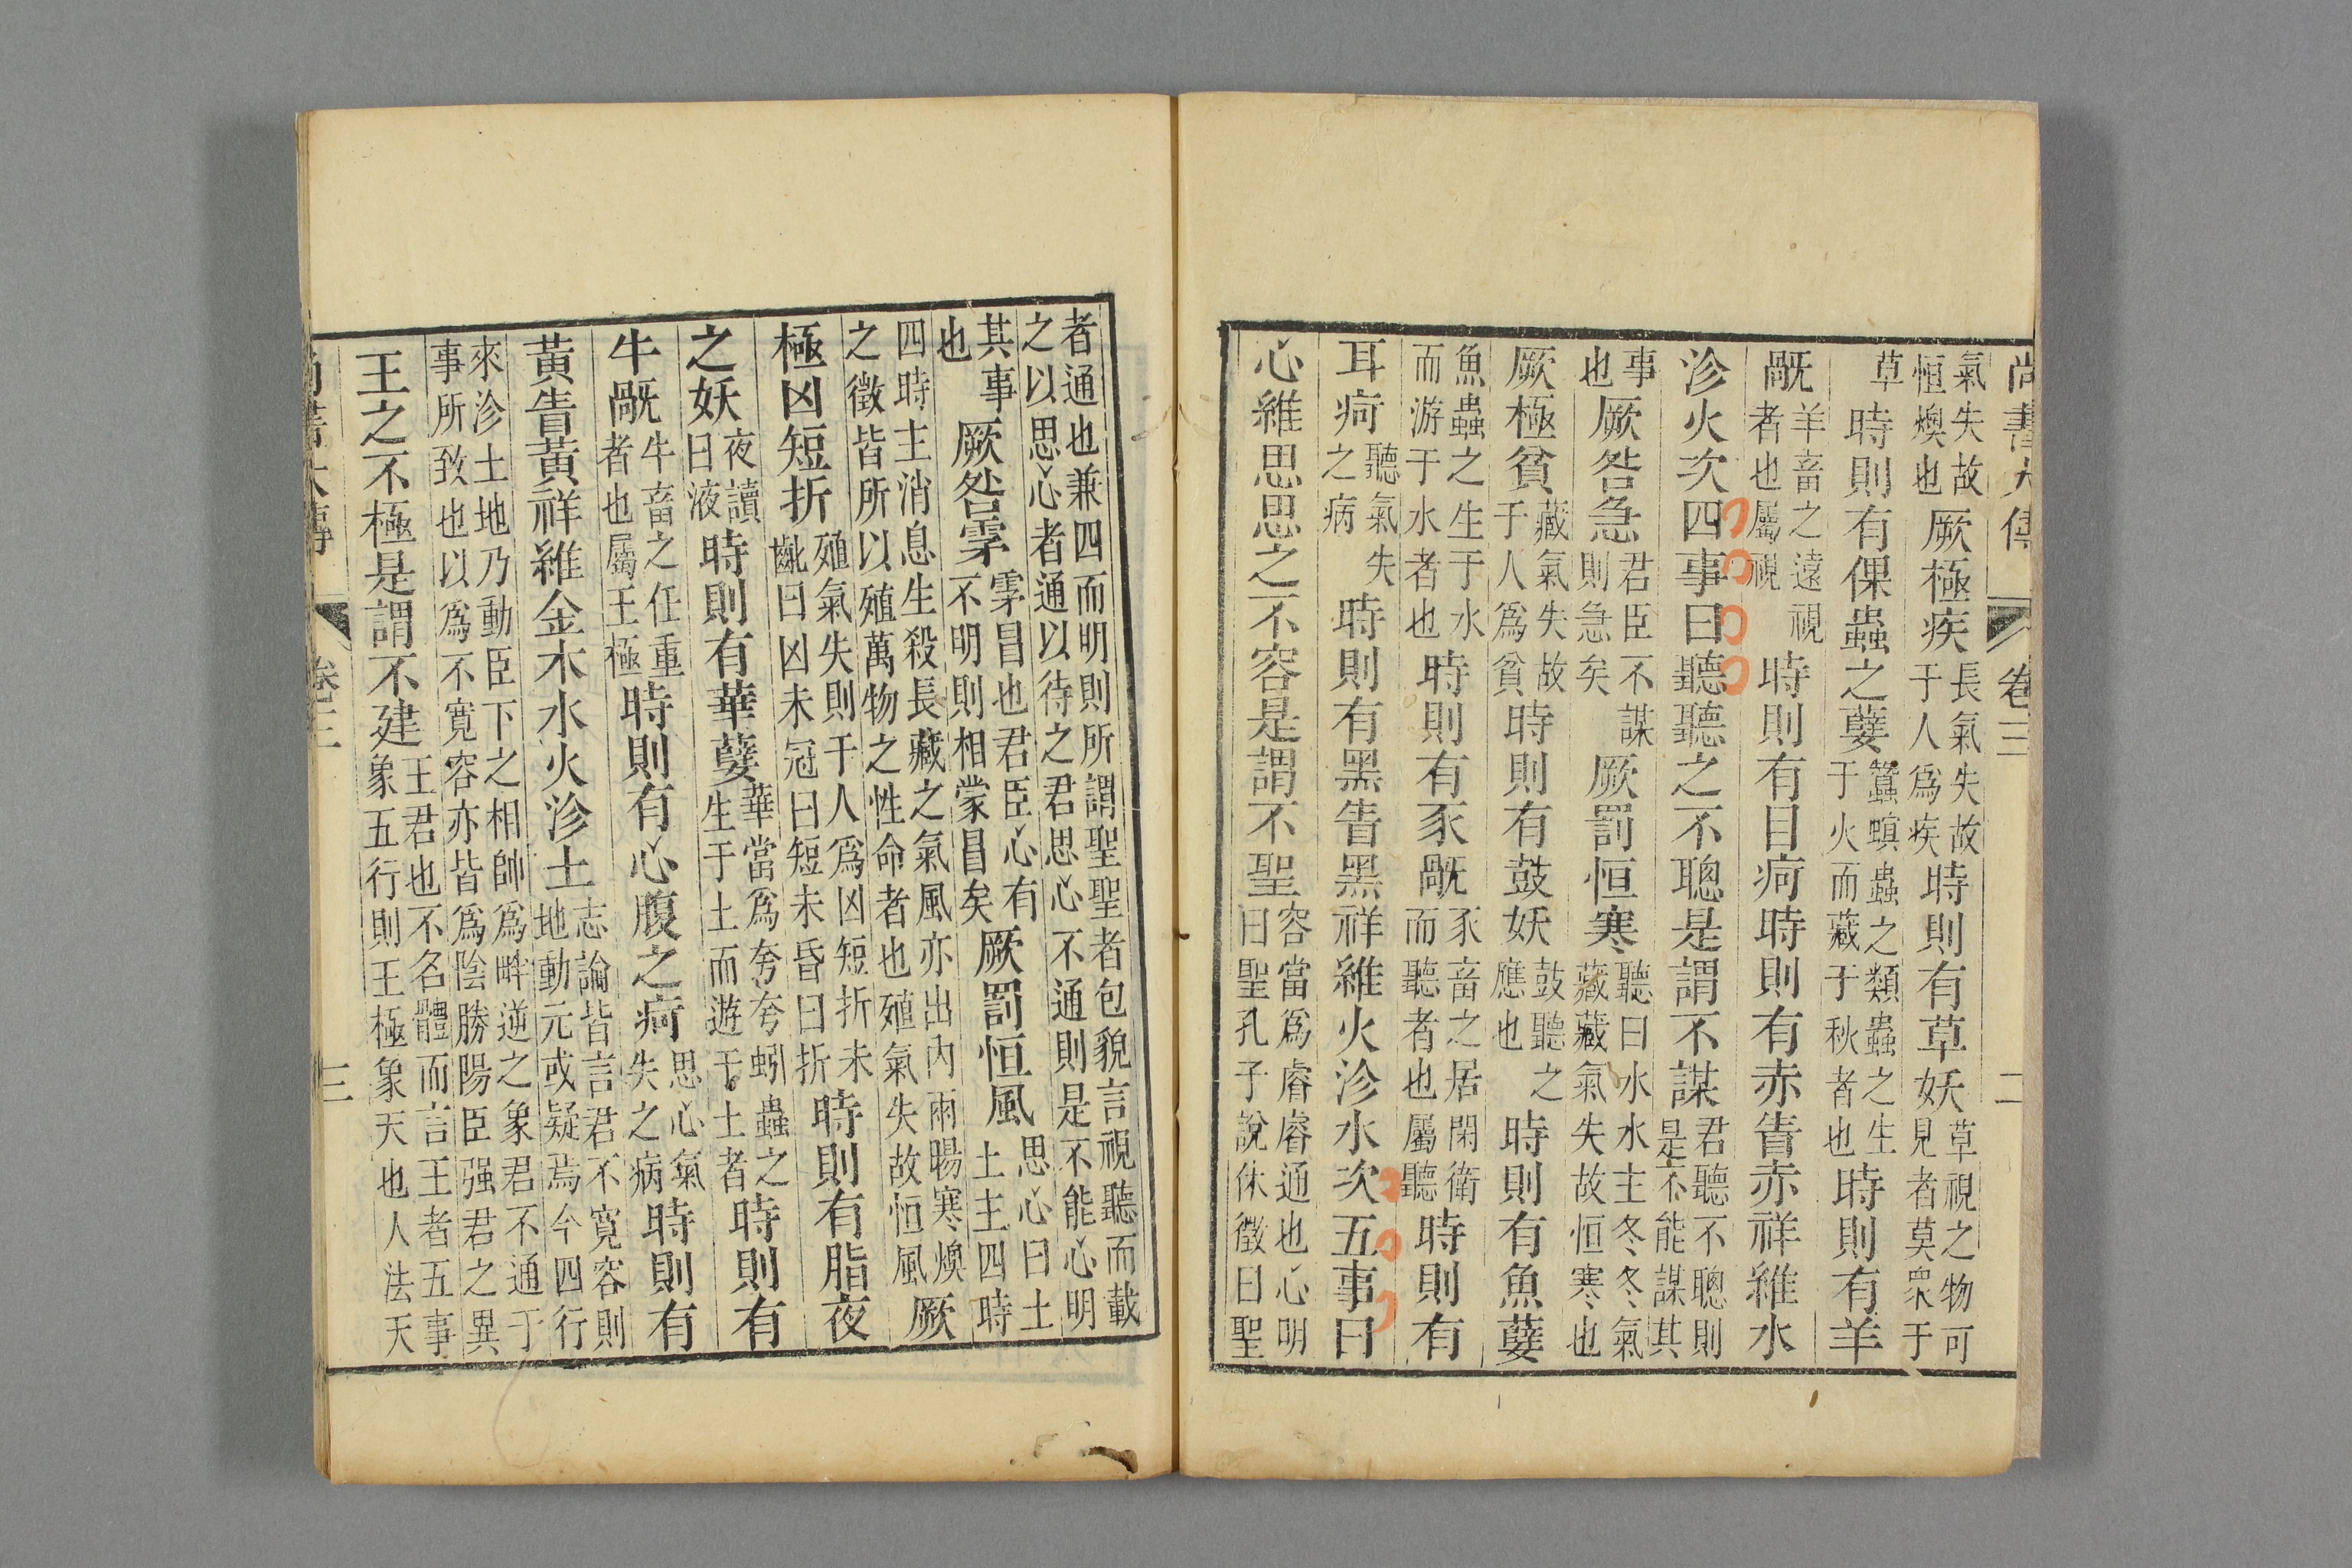 尚書大傳 卷三 二
氣失故恒燠也厥極疾長氣失故于人爲疾時則有草妖草視之物可見者莫衆于
草時則有倮蟲之孽蠶螟蟲之類蟲之生于火而藏于秋者也時則有羊
旤羊畜之遠視者也屬視時則有目痾時則有赤眚赤祥維水
沴火次四事曰聽聽之不聰是謂不謀君聽不聰則是不能謀其
事也厥咎急君臣不謀則急矣厥罰恒寒聽曰水水主冬冬氣藏藏氣失故恒寒也
厥極貧藏氣失故于人爲貧時則有鼓妖鼓聽之應也時則有魚孽
魚蟲之生于水而游于水者也時則有豕旤豕畜之居閑衛而聽者也屬聽時則有
耳痾聽氣失之病時則有黑眚黑祥維火沴水次五事曰
心維思思之不容是謂不聖容當爲睿睿通也心明曰聖孔子說休徵曰聖
者通也兼四而明則所謂聖聖者包貌言視聽而載之以思心者通以待之君思心不通則是不能心明
其事也厥咎雺雺冒也君臣心有不明則相蒙冒矣厥罰恒風思心曰土土主四時
四時主消息生殺長藏之氣風亦出內雨暘寒燠之徵皆所以殖萬物之性命者也殖氣失故恒風厥
極凶短折殖氣失則于人爲凶短折未齔曰凶未冠曰短未昏曰折時則有脂夜
之妖夜讀曰液時則有華孽華當爲夸夸蚓蟲之生于土而遊于土者時則有
牛旤牛畜之任重者也屬王極時則有心腹之痾思心氣失之病時則有
黃眚黃祥維金木水火沴土志論皆言君不寬容則地動元或疑焉今四行
來沴土地乃動臣下之相帥爲畔逆之象君不通于事所致也以爲不寬容亦皆爲陰勝陽臣强君之異
王之不極是謂不建王君也不名體而言王者五事象五行則王極象天也人法天
尚書大傳 卷三 三